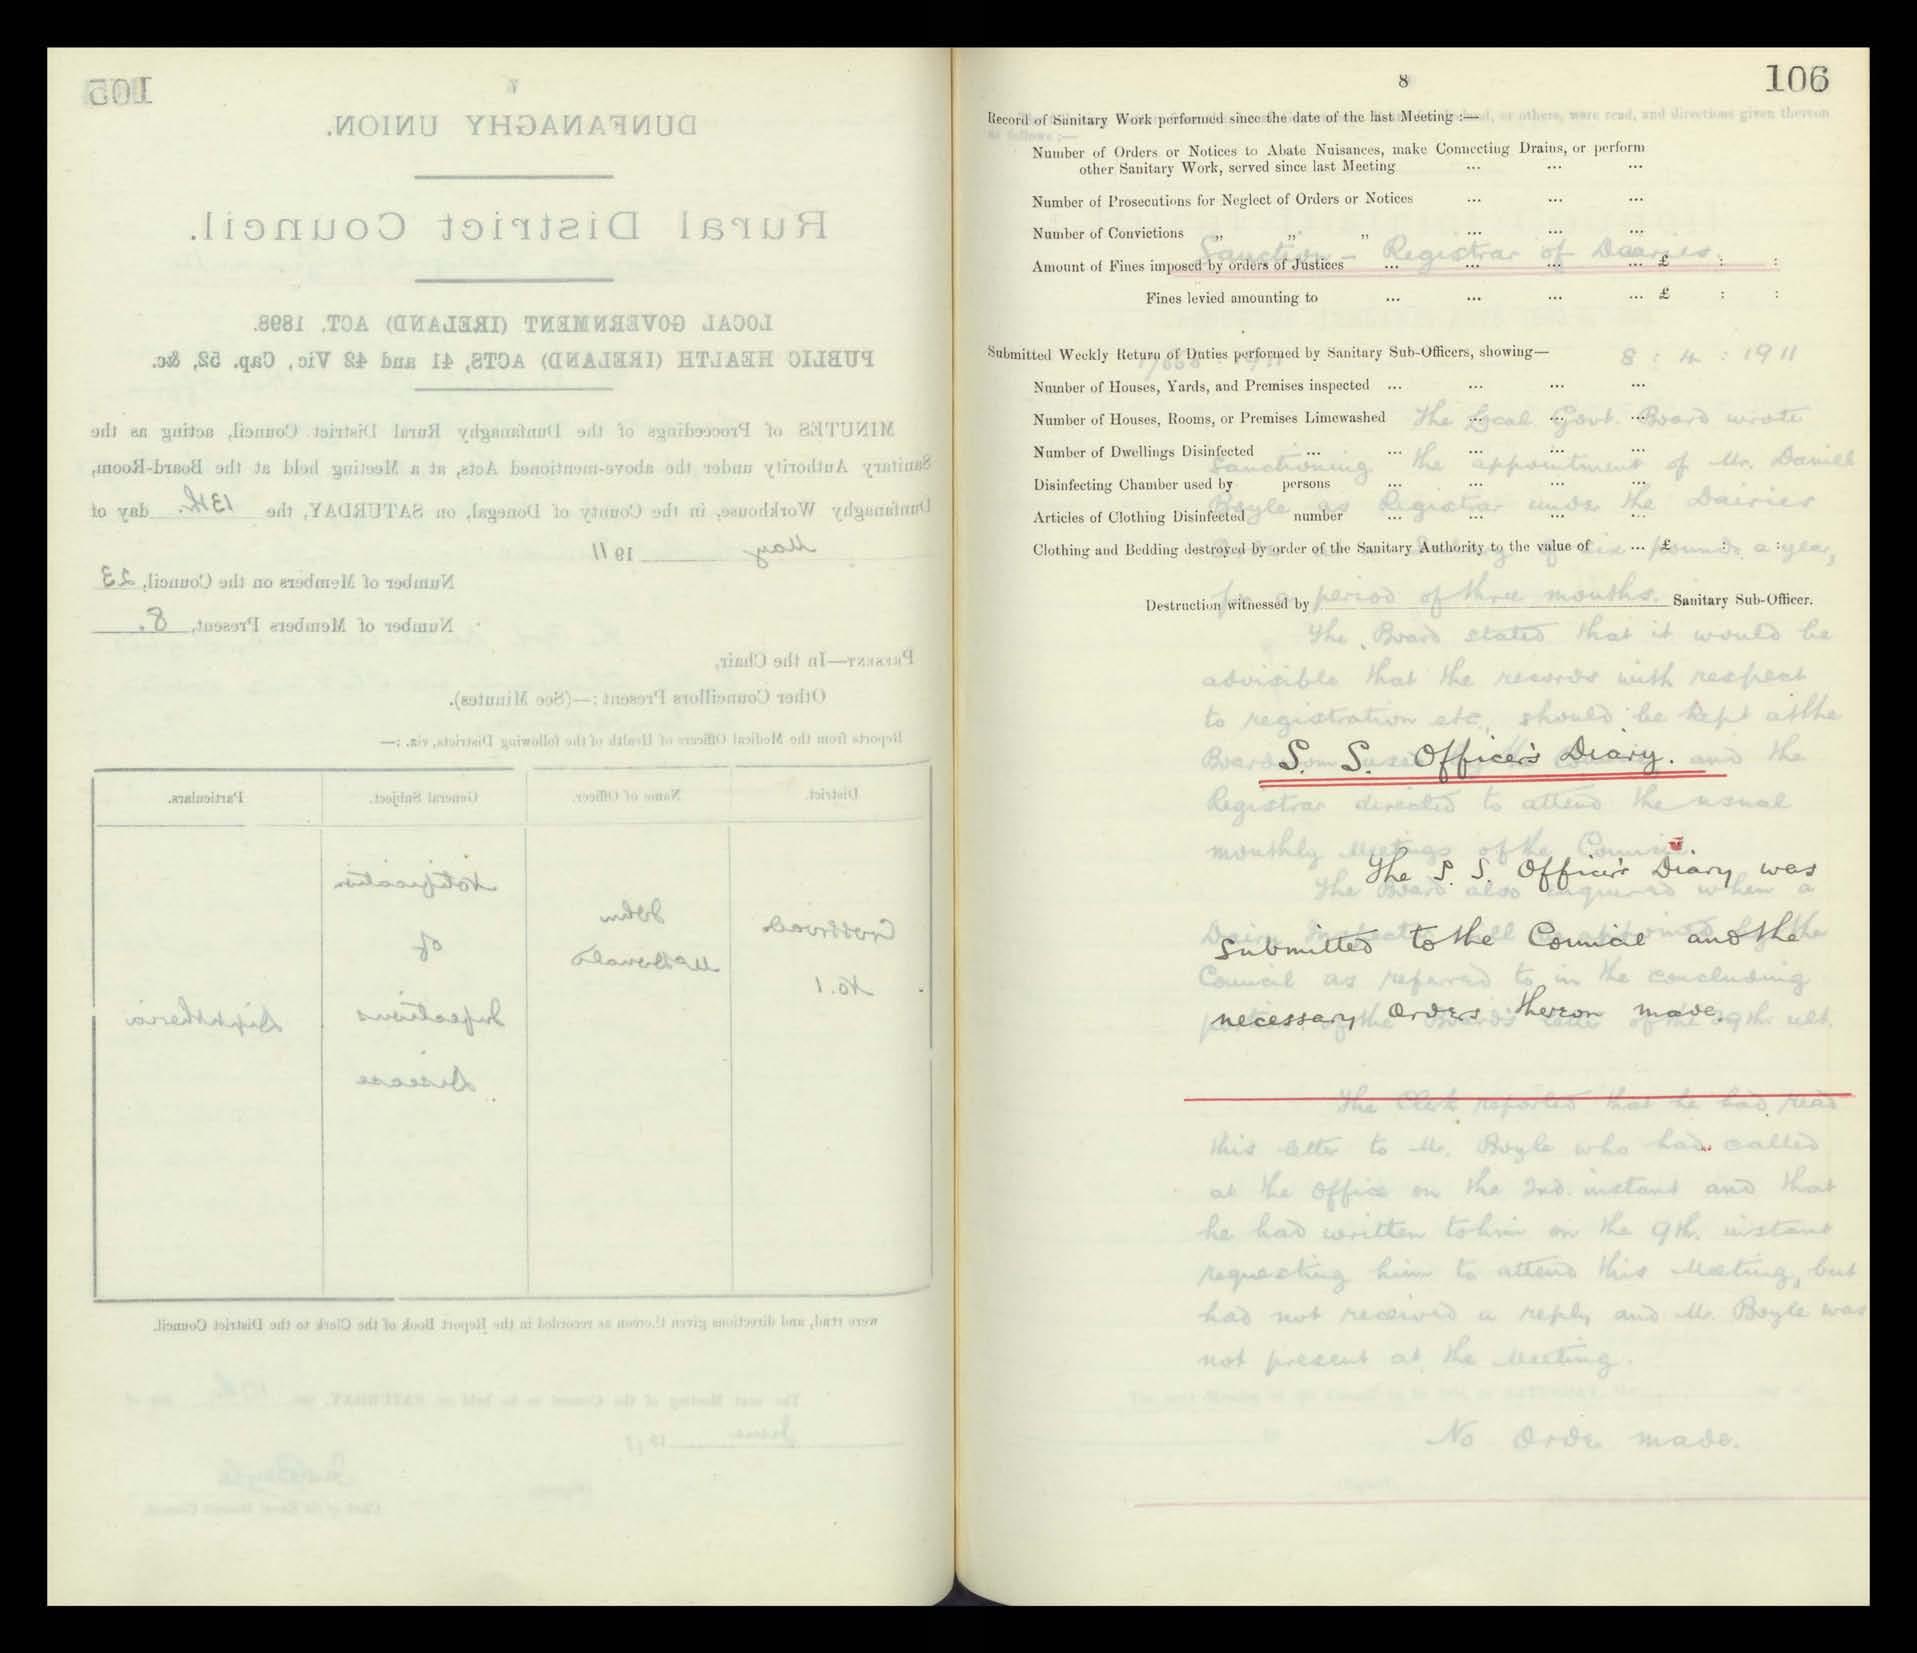 105
DUNFANAGHY UNION.
Rural District Council.
LOCAL GOVERNMENT (IRELAND) ACT, 1898.
PUBLIC HEALTH (IRELAND) ACTS, 41 and 42 Vic, Cap. 52, &c.
MINUTES of Proceedings of the Dunfanaghy Rural District Council, acting as the
Sanitary Authority under the above-mentioned Acts, at a Meeting held at the Board-Room,
Dunfanaghy Workhouse, in the County of Donegal, on SATURDAY, the 13th. day of
May 1911
Number of Members on the Council, 23
Number of Members Present, 8.
PRESENT—In the Chair,
Other Councillors Present :—(See Minutes).
Reports from the Medical Officers of Health of the following Districts, viz. :—
District. Name of Officer. General Subject. Particulars.
Crossroads No. 1 John McDonald Notification of Infectious Disease Diphtheria
were read, and directions given thereon as recorded in the Report Book of the Clerk to the District Council.
The next Meeting of the Council to be held on SATURDAY, the 17th. day of
June 1911
Clerk of the Rural District Council.
8
106
Record of Sanitary Work performed since the date of the last Meeting :—
Number of Orders or Notices to Abate Nuisances, make Connecting Drains, or perform
other Sanitary Work, served since last Meeting ... ... ...
Number of Prosecutions for Neglect of Orders or Notices ... ... ...
Number of Convictions „ „ „ ... ... ...
Amount of Fines imposed by orders of Justices ... ... ... ... £ : :
Fines levied amounting to ... ... ... ... £ : :
Submitted Weekly Return of Duties performed by Sanitary Sub-Officers, showing—
Number of Houses, Yards, and Premises inspected ... ... ... ...
Number of Houses, Rooms, or Premises Limewashed ... ... ...
Number of Dwellings Disinfected ... ... ... ...
Disinfecting Chamber used by persons ... ... ... ...
Articles of Clothing Disinfected number ... ... ... ...
Clothing and Bedding destroyed by order of the Sanitary Authority to the value of ... £ : :
Destruction witnessed by Sanitary Sub-Officer.
S. S. Officer's Diary.
The S. S. Officer's Diary was
submitted to the Council and the
necessary orders thereon made.
Sanction — Registrar of Dairies.
8 : 4 : 1911
The Local Govt. Board wrote
sanctioning the appointment of Mr. Daniel
Boyle as Registrar under the Dairies
six pounds a year,
for a period of three months.
The Board stated that it would be
advisible that the records with respect
to registration etc., should be kept at the
and the
Registrar directed to attend the usual
monthly Meetings of the Council.
The Board also inquired when a
Council as referred to in the concluding
The Clerk reported that he had read
this letter to Mr. Boyle who had called
at the office on the 2nd. instant and that
he had written to him on the 9th. instant
requesting him to attend this Meeting, but
had not received a reply and Mr. Boyle was
not present at the Meeting.
No order made.